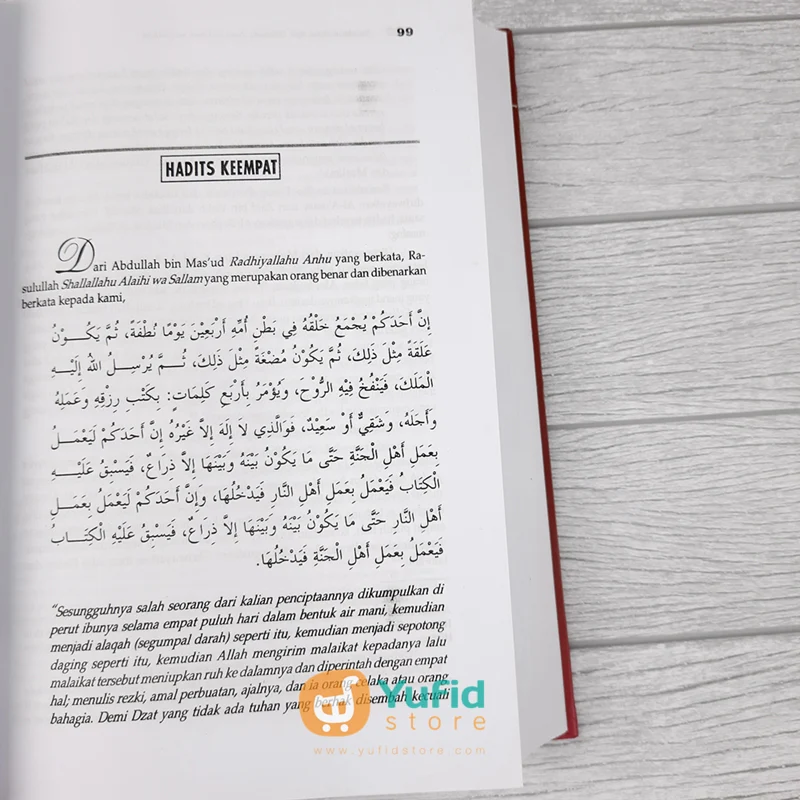 99
HADITS KEEMPAT
Dari Abdullah bin Mas'ud Radhiyallahu Anhu yang berkata, Ra-
sulullah Shallallahu Alaihi wa Sallam yang merupakan orang benar dan dibenarkan
berkata kepada kami,
إِنَّ أَحَدَكُمْ يُجْمَعُ خَلْقُهُ فِي بَطْنِ أُمِّهِ أَرْبَعِيْنَ يَوْمًا نُطْفَةً، ثُمَّ يَكُـــوْنُ
عَلَقَةً مِثْلَ ذَلِكَ، ثُمَّ يَكُوْنُ مُضْغَةً مِثْلَ ذَلِكَ، ثُـــمَّ يُرْسِـــلُ اللهُ إِلَيْـــهِ
الْمَلَكَ، فَيَنْفُخُ فِيْهِ الرُّوْحَ، وَيُؤْمَرُ بِأَرْبَعِ كَلِمَاتٍ: بِكَتْبِ رِزْقِهِ وَعَمَلِهِ
وَأَجَلِهِ، وَشَقِيٌّ أَوْ سَعِيْدٌ، فَوَالَّذِي لاَ إِلَهَ إِلاَّ غَيْرُهُ إِنَّ أَحَدَكُمْ لَيَعْمَـــلُ
بِعَمَلِ أَهْلِ الْجَنَّةِ حَتَّى مَا يَكُوْنُ بَيْنَهُ وَبَيْنَهَا إِلاَّ ذِرَاعٌ، فَيَسْبِقُ عَلَيْـــهِ
الْكِتَابُ فَيَعْمَلُ بِعَمَلِ أَهْلِ النَّارِ فَيَدْخُلُهَا، وَإِنَّ أَحَدَكُمْ لَيَعْمَلُ بِعَمَـــلِ
أَهْلِ النَّارِ حَتَّى مَا يَكُوْنُ بَيْنَهُ وَبَيْنَهَا إِلاَّ ذِرَاعٌ، فَيَسْبِقُ عَلَيْهِ الْكِتَـــابُ
فَيَعْمَلُ بِعَمَلِ أَهْلِ الْجَنَّةِ فَيَدْخُلُهَا.
"Sesungguhnya salah seorang dari kalian penciptaannya dikumpulkan di
perut ibunya selama empat puluh hari dalam bentuk air mani, kemudian
menjadi alaqah (segumpal darah) seperti itu, kemudian menjadi sepotong
daging seperti itu, kemudian Allah mengirim malaikat kepadanya lalu
malaikat tersebut meniupkan ruh ke dalamnya dan diperintah dengan empat
hal; menulis rezki, amal perbuatan, ajalnya, dan ia orang celaka atau orang
bahagia. Demi Dzat yang tidak ada tuhan yang berhak disembah kecuali
Yufid
store
www.yufidstore.com